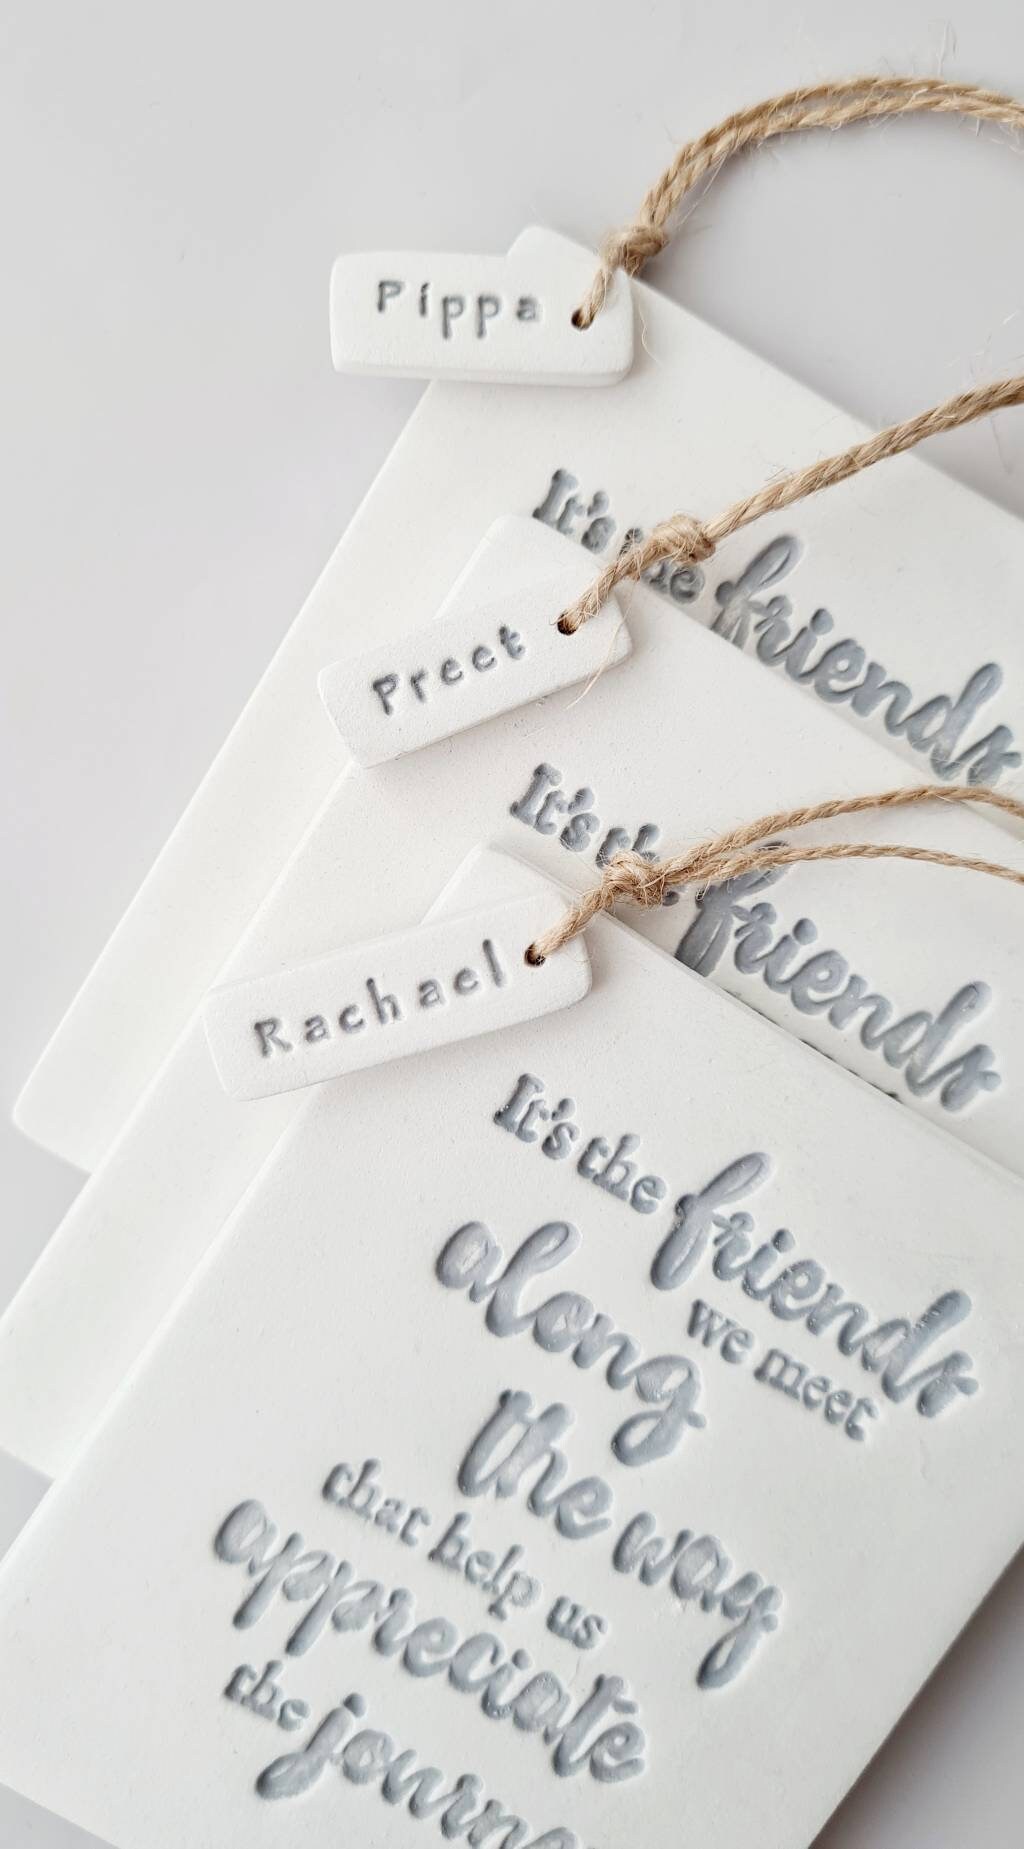 Pippa
It's the friends
Preet
It's the friends
Rachael
It's the friends
we meet
along
the way
that help us
appreciate
the